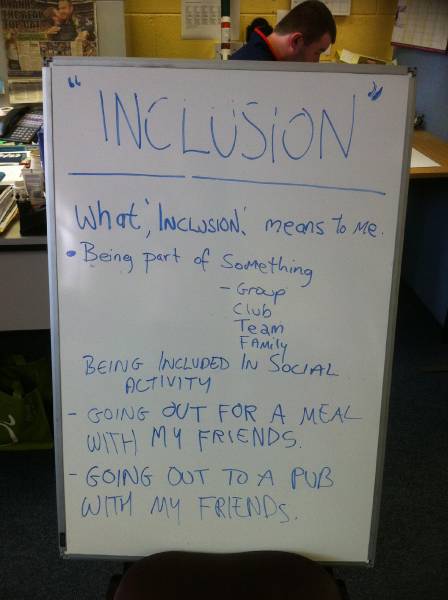 "INCLUSION"
What 'INCLUSION' means to me.
• Being part of Something
- Group
Club
Team
Family
BEING INCLUDED IN SOCIAL
ACTIVITY
- GOING OUT FOR A MEAL
WITH MY FRIENDS.
- GOING OUT TO A PUB
WITH MY FRIENDS.